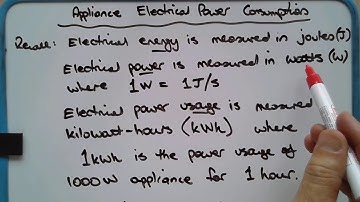 Appliance Electrical Power Consumption
Recall: Electrical energy is measured in joules (J)
Electrical power is measured in watts (W)
where 1W = 1J/s
Electrical power usage is measured
kilowatt-hours (kWh) where
1 kWh is the power usage of
1000W appliance for 1 hour.